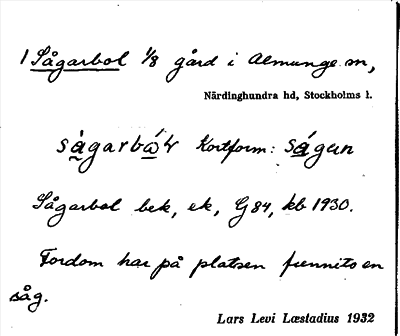 1 Sågarbol 1/8 gård i Almunge sn,
Närdinghundra hd, Stockholms l.
Kortform: sågan
Sågarbol bek, ek, G84, kb 1930.
Fordom har på platsen funnits en
såg.
Lars Levi Læstadius 1932